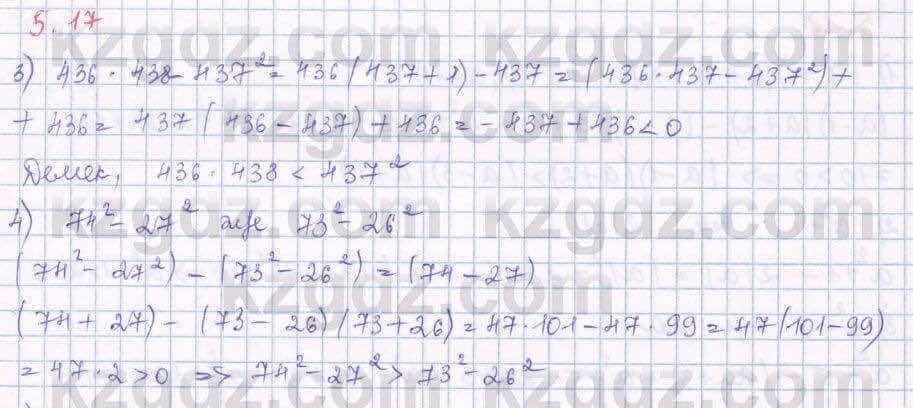 5.17
3) 436 · 438 - 437² = 436 (437 + 1) - 437 = (436 · 437 - 437²) +
+ 436 = 437 (436 - 437) + 436 = - 437 + 436 < 0
Демек, 436 · 438 < 437²
4) 74² - 27² және 73² - 26²
(74² - 27²) - (73² - 26²) = (74 - 27)
(74 + 27) - (73 - 26) (73 + 26) = 47 · 101 - 47 · 99 = 47 (101 - 99)
= 47 · 2 > 0 => 74² - 27² > 73² - 26²
kzgdz.com
kzgdz.com
kzgdz.com
kzgdz.com
kzgdz.com